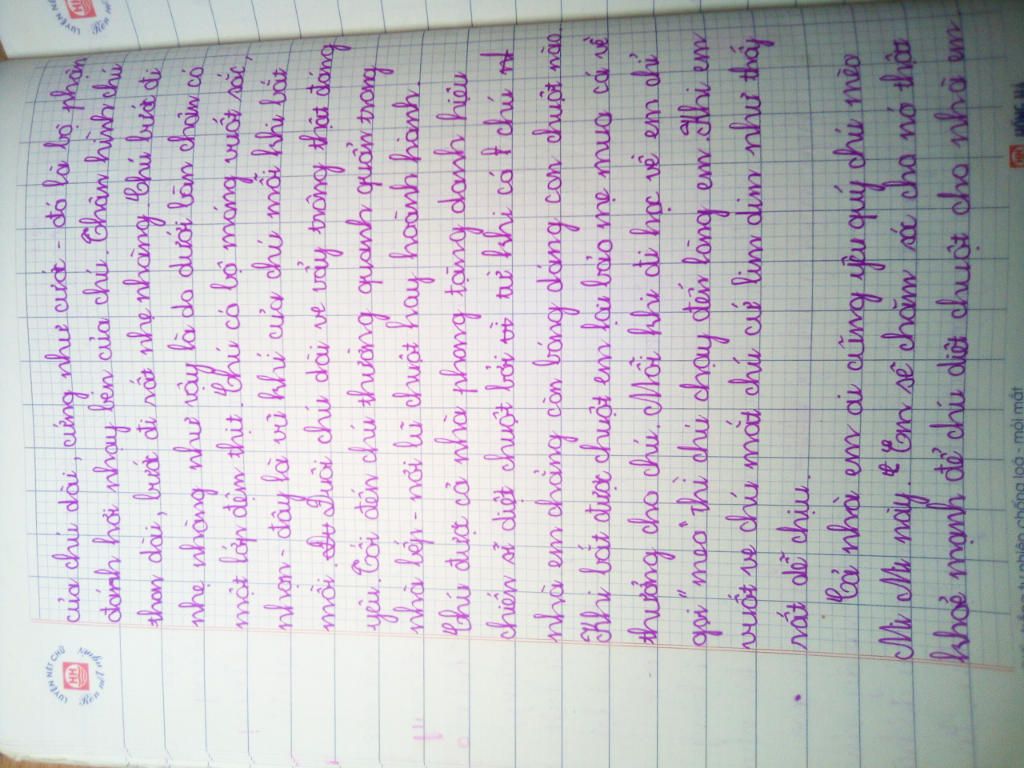 LUYỆN NÉT CHỮ
Rèn nết người
HH
của chú dài, cứng như cước - đó là bộ phận
đánh hơi nhạy bén của chú. Thân hình chú
thon dài, bước đi rất nhẹ nhàng. Chú bước đi
nhẹ nhàng như vậy là do dưới bàn chân có
một lớp đệm thịt. Chú có bộ móng vuốt sắc,
nhọn - đây là vũ khí của chú mỗi khi bắt
mồi. Đuôi chú dài ve vẩy trông thật đáng
yêu. Tối đến chú thường quanh quẩn trong
nhà bếp - nơi lũ chuột hay hoành hành.
Chú được cả nhà phong tặng danh hiệu
chiến sĩ diệt chuột bởi từ khi có chú
nhà em chẳng còn bóng dáng con chuột nào.
Khi bắt được chuột em lại bảo mẹ mua cá về
thưởng cho chú. Mỗi khi đi học về em chỉ
gọi "meo" thì chú chạy đến lòng em. Khi em
vuốt ve chú mắt chú cứ lim dim như thấy
rất dễ chịu.
Cả nhà em ai cũng yêu quý chú mèo
Mi Mi này. Em sẽ chăm sóc cho nó thật
khoẻ mạnh để chú diệt chuột cho nhà em